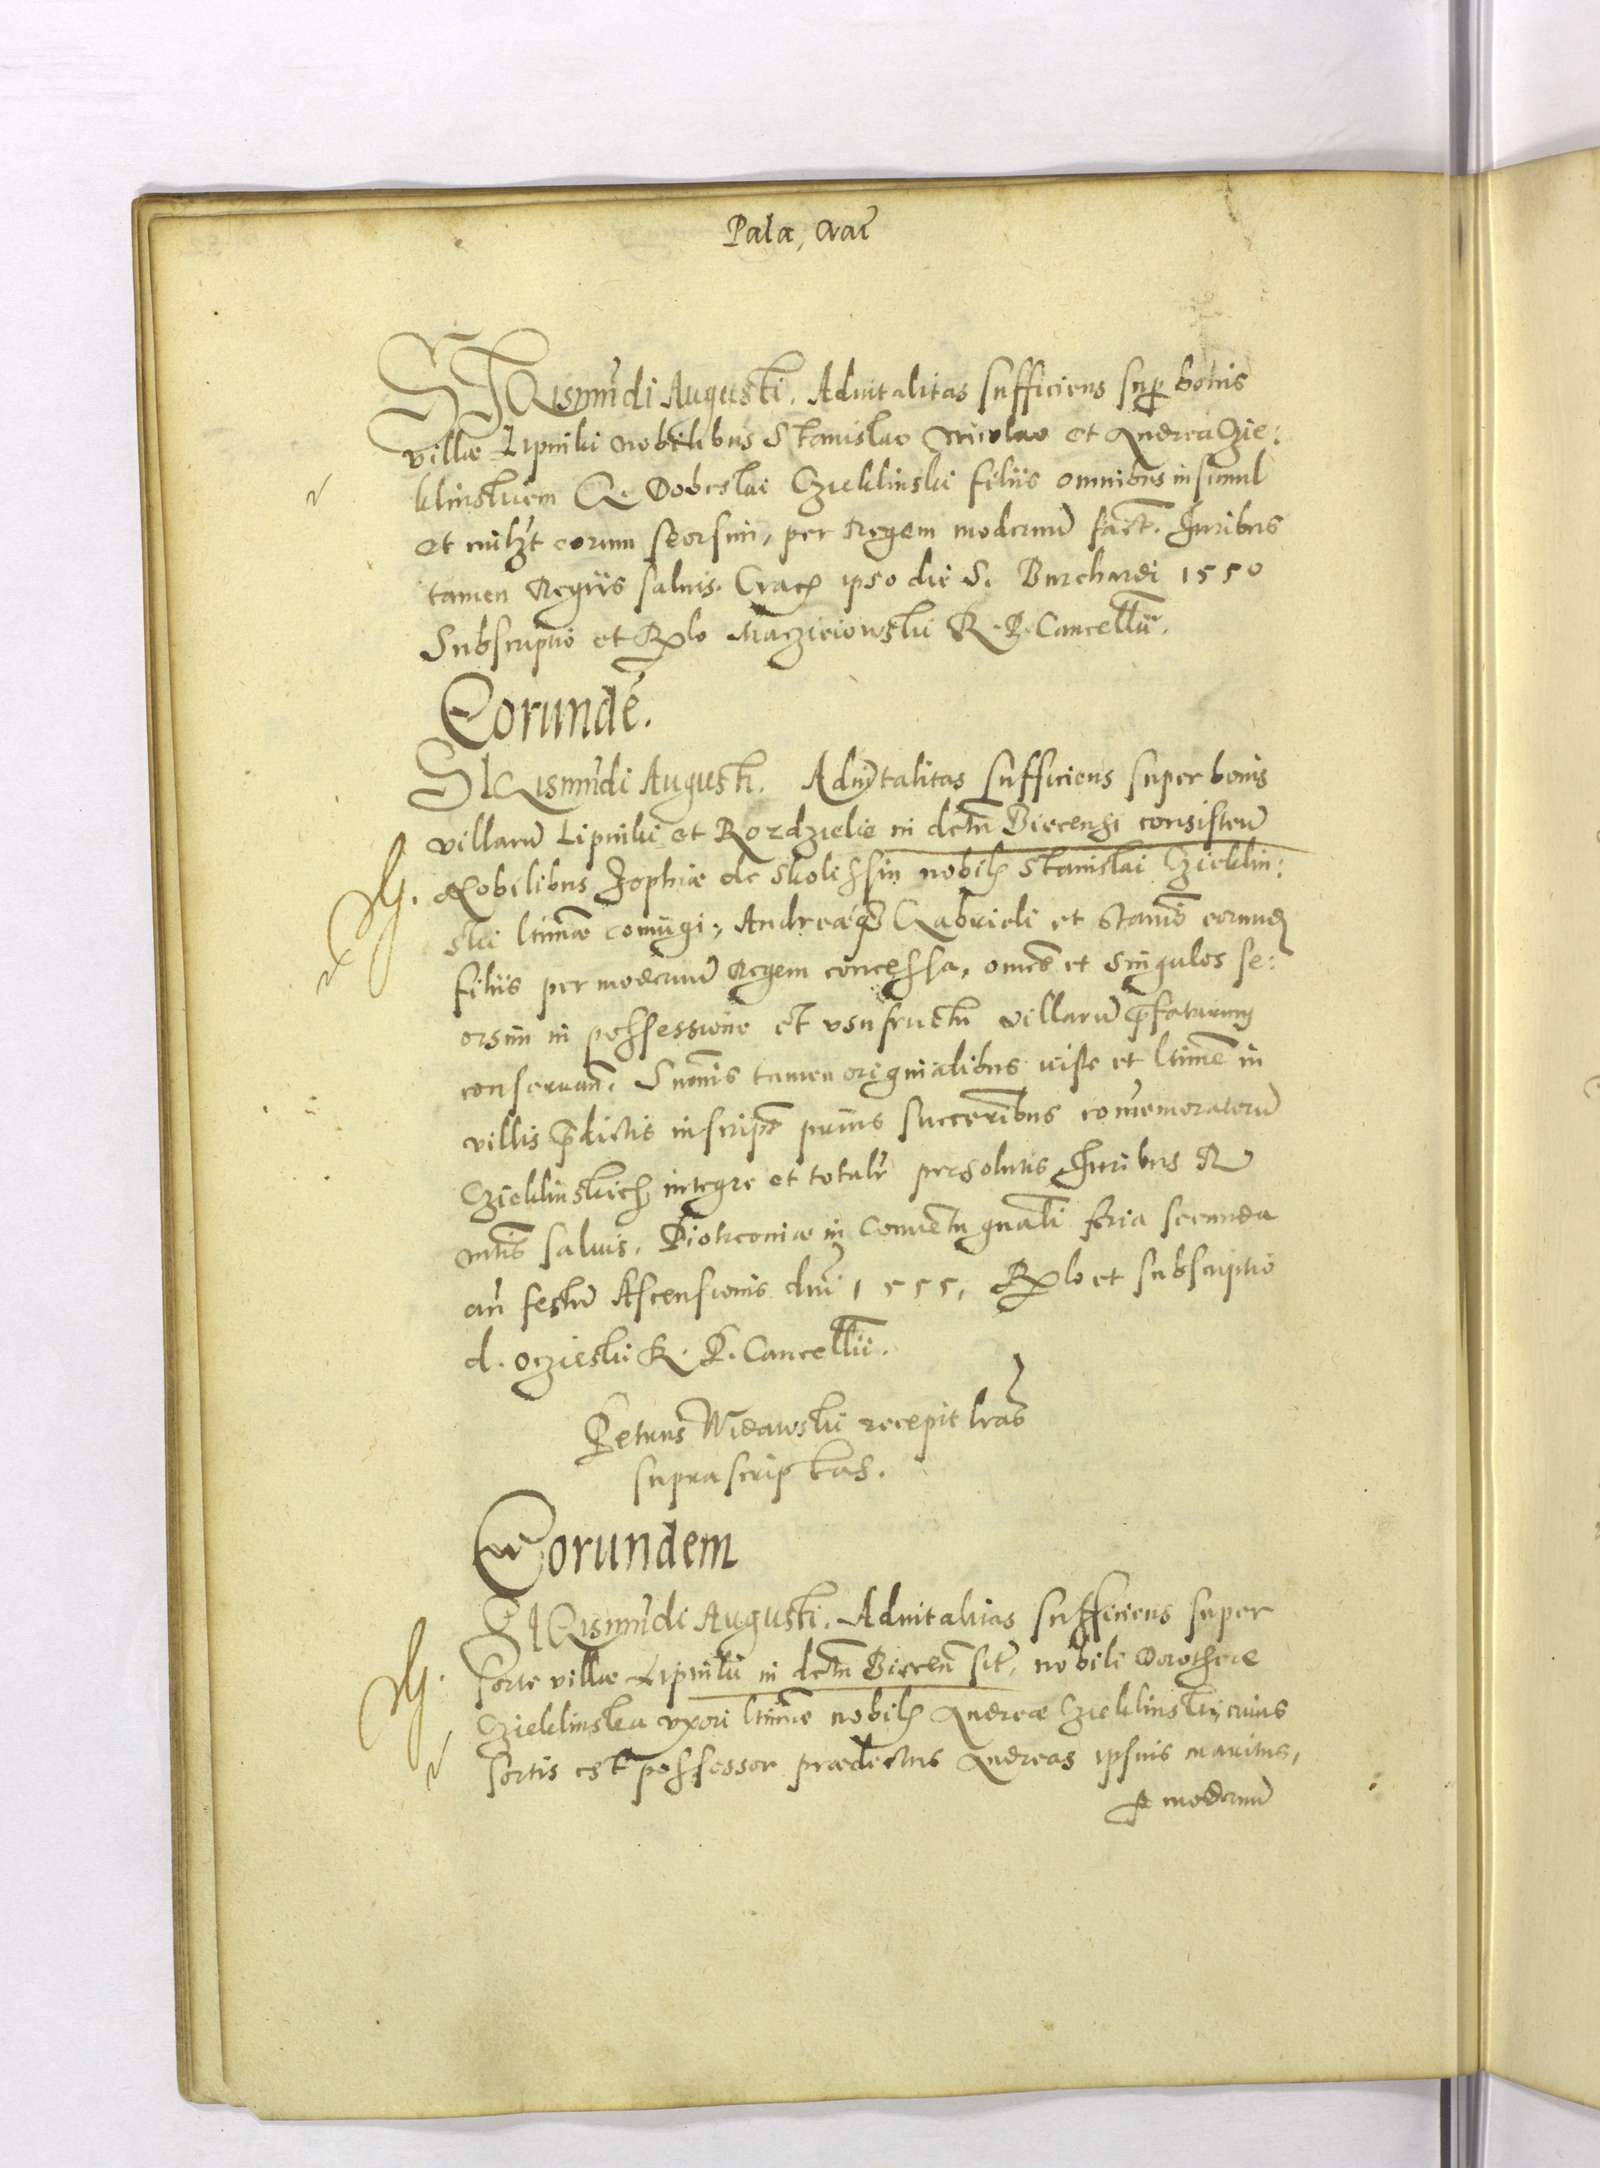 Pala, Crac̃
SIGismũdi Augusti. Aduitalitas sufficiens sup bonis
villæ Lipniki nobilibus Stanislao Nicolao et Andrea Czie:
klinskiem Q. Dobeslai Czieklinski filiis omnibus insimul
et cuilz̃t eorum seorsim, per Regem modernũ fact̃. Iuribus
tamen Regiis saluis. Crac ipso die S. Burchardi 1550
Subscriptio et Rlo Maczieiowski R. P. Cancellũ.
Eorundẽ.
SIGismũdi Augusti. Aduitalitas sufficiens super bonis
villarũ Lipniki et Rozdziele in dctũ Biecensi consisteñ
G.
Nobilibus Zophiæ de Skolissin nobil Stanislai Czieklin:
ski ltimæ coniugi, Andreæq Gabrieli et Stanis eorund
filiis per modernũ Regem concessa, omēs et singulos se:
orsim in possessione et vsufructu villarũ p̃fatarum
conseruañ. Sumis tamen originalibus iuste et ltime in
villis p̃dictis inscript prius succeribus com̃emoratorũ
Czieklinskich, integre et totalr̃ persolutis Iuribus R
mtis saluis. Piotrconiæ in Conuentu gnali feria secunda
añ festũ Ascensionis dni 1555, Rlo et subscriptio
d. Oczieski R. P. Cancellii.
Petrus Widawski recepit lras
suprascriptas.
Eorundem
SIGismũdi Augusti. Aduitalitas sufficiens super
G.
sorte villæ Lipniki in dctũ Biecen̄ sit̃, nobili Dorotheæ
Czieklinska vxori ltimæ nobil Andreæ Czieklinski, cuius
sortis est possessor prædictus Andreas ipsius maritus,
p modernũ